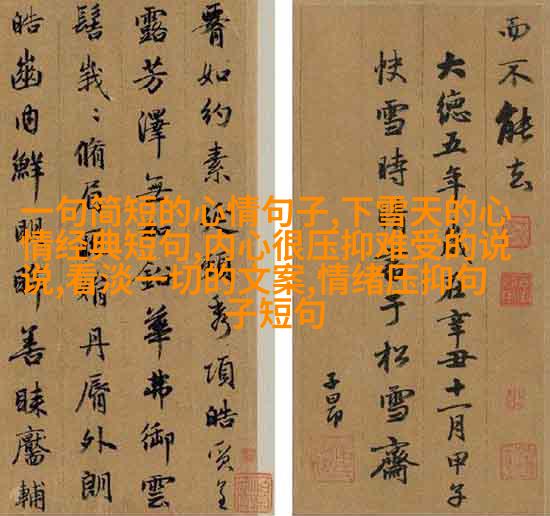 一句简短的心情句子,下雪天的心
情经典短句,内心很压抑难受的说
说,看淡一切的文案,情绪压抑句
子短句
而不能去
大德五年在辛丑十一月甲子
快雪時于松雪齋
子昂
如約素延秀項皓質呈
露芳澤無華弗御雲
髻峩〻脩眉娟丹脣外朗
皓齒內鮮明眸善睞靨輔